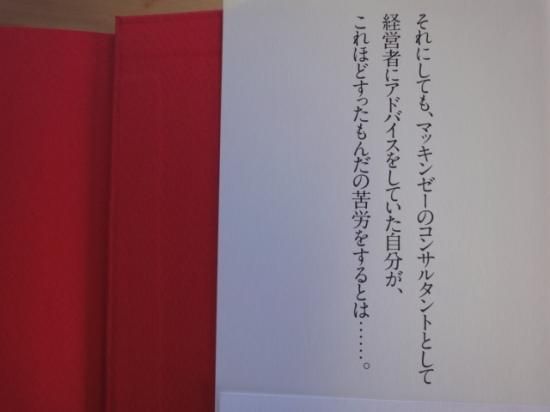 それにしても、マッキンゼーのコンサルタントとして
経営者にアドバイスをしていた自分が、
これほどすったもんだの苦労をするとは……。